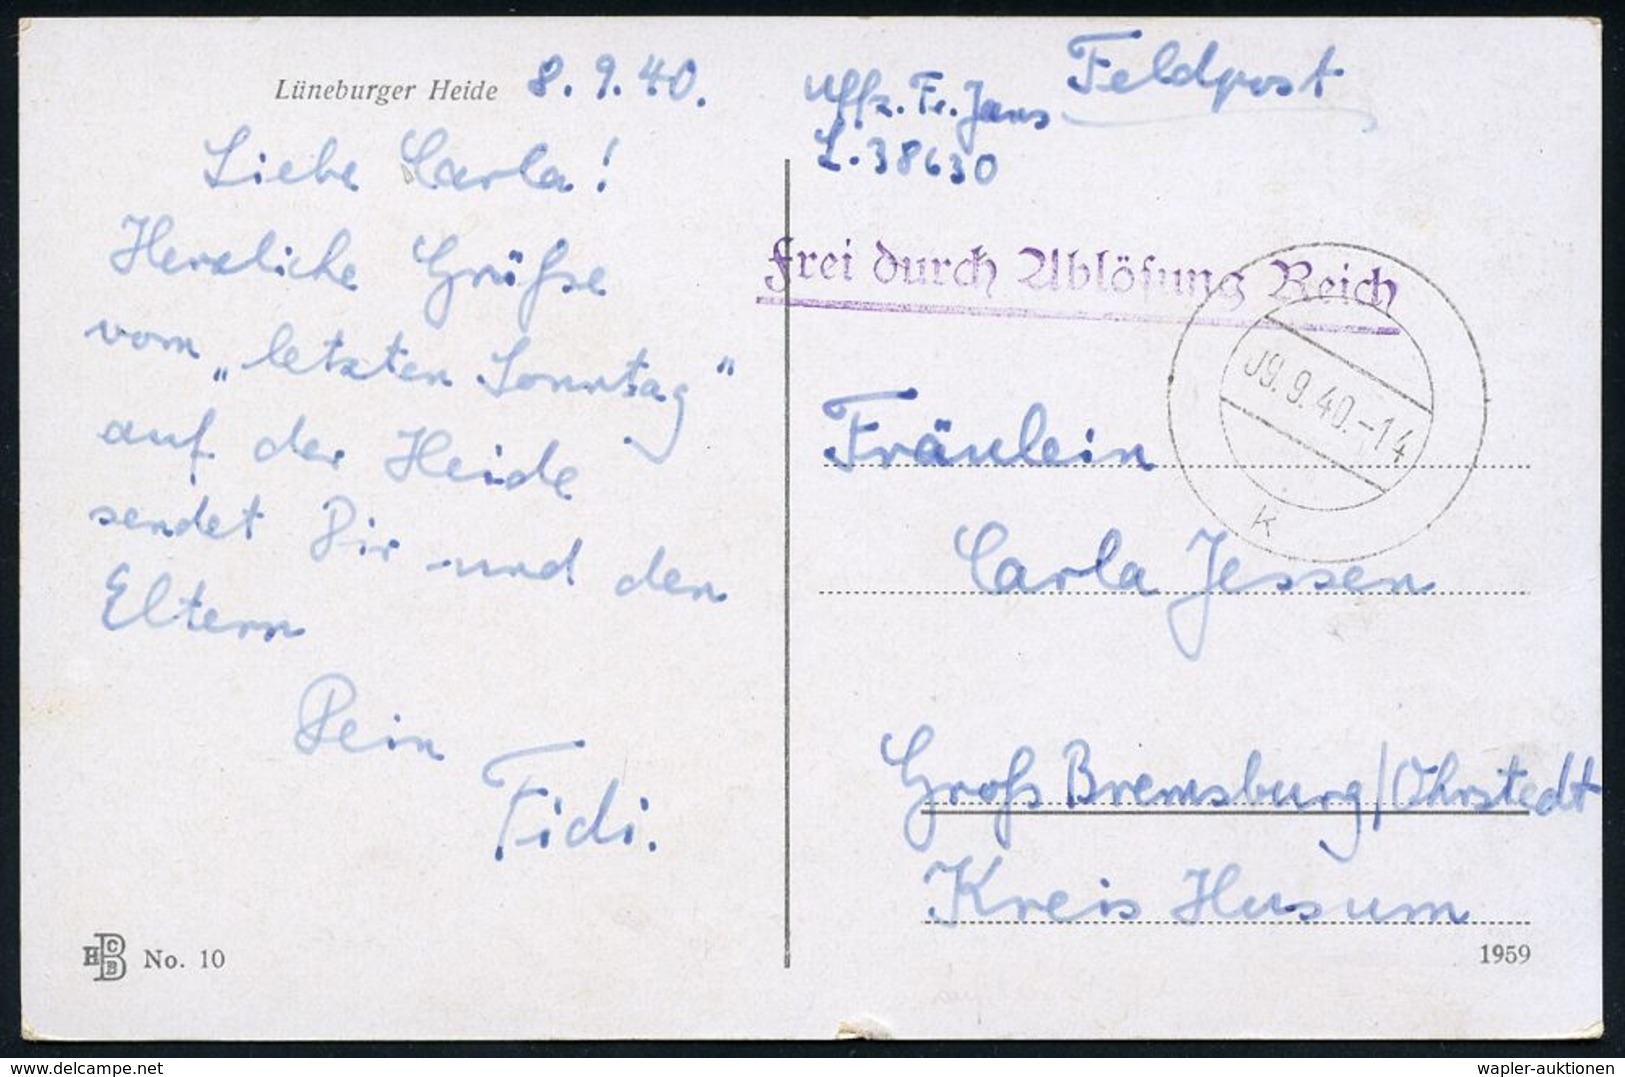 Lüneburger Heide 8.9.40.
Liebe Carla!
Herzliche Grüße
vom „letzten Sonntag"
auf der Heide
sendet Dir und den
Eltern
Dein
Fidi.
HCBB No. 10
Feldpost
Uffz. Fr. Jans
L. 38630
Frei durch Ablösung Reich
09.9.40.-14
K
Fräulein
Carla Jessen
Groß Bremsburg/Ohrstedt
Kreis Husum
1959
wapler-auktionen